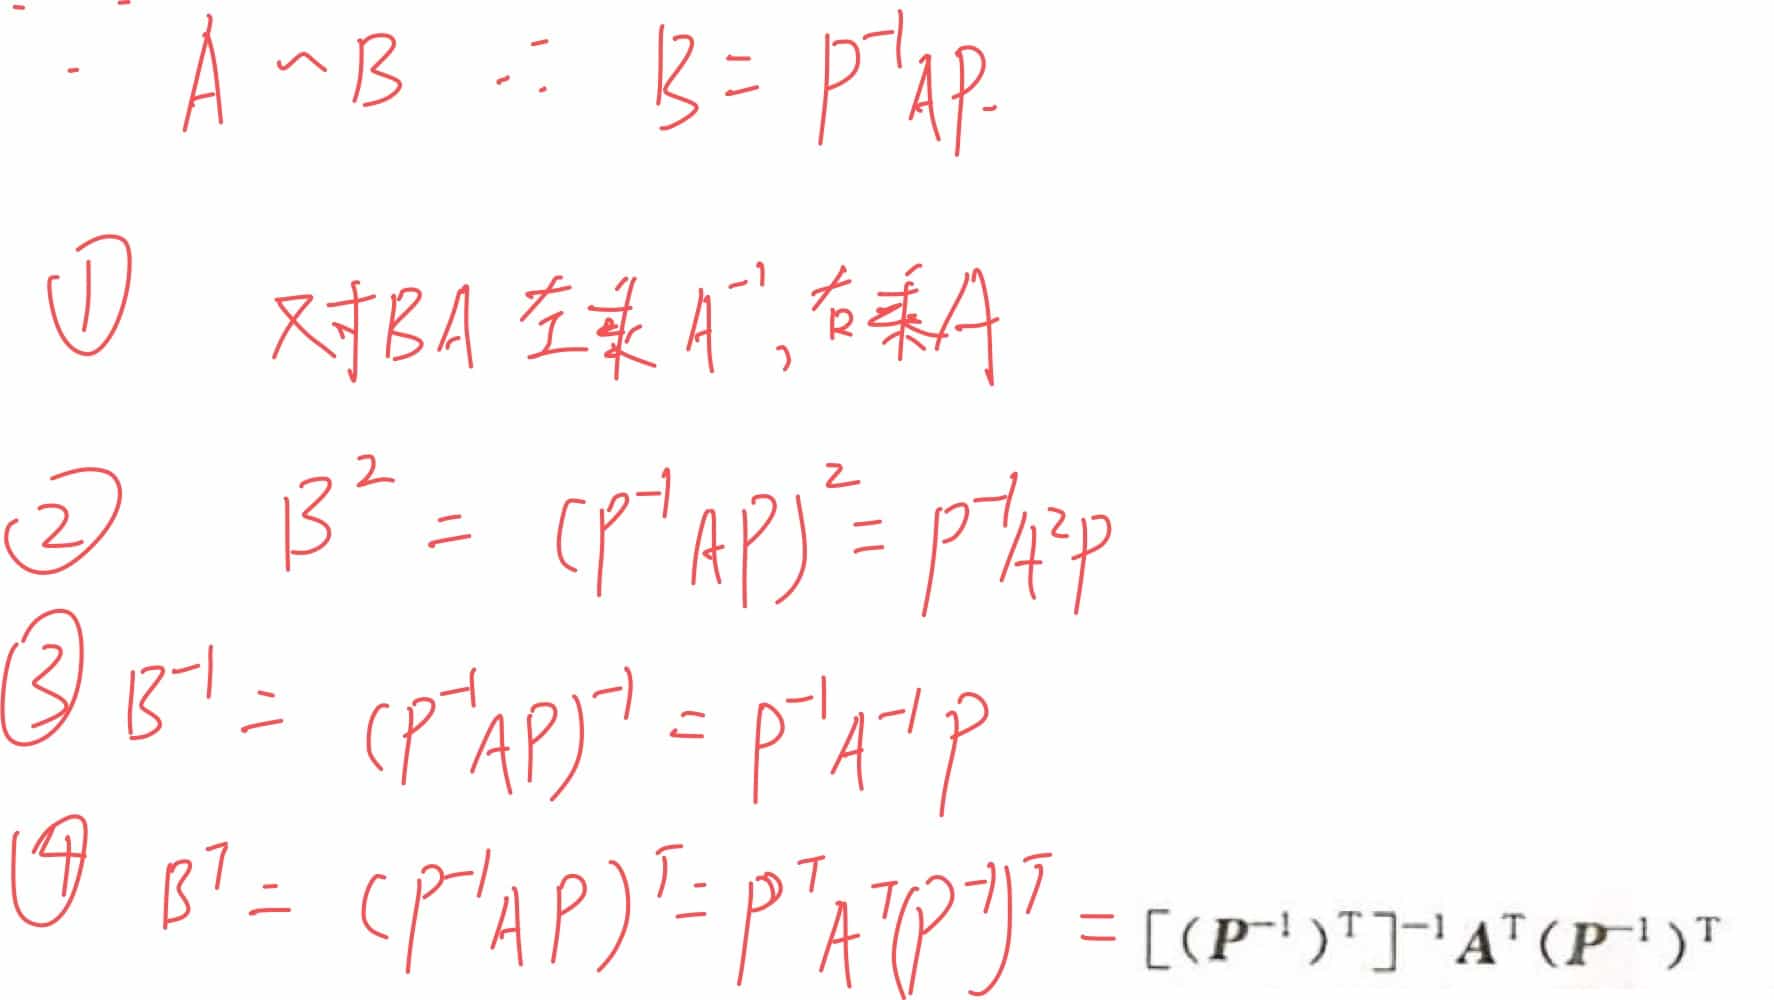 ∵ A ~ B ∴ B = P⁻¹AP.
① 对BA 左乘 A⁻¹, 右乘A
② B² = (P⁻¹AP)² = P⁻¹A²P
③ B⁻¹ = (P⁻¹AP)⁻¹ = P⁻¹A⁻¹P
④ Bᵀ = (P⁻¹AP)ᵀ = PᵀAᵀ(P⁻¹)ᵀ = [(P⁻¹)ᵀ]⁻¹Aᵀ(P⁻¹)ᵀ